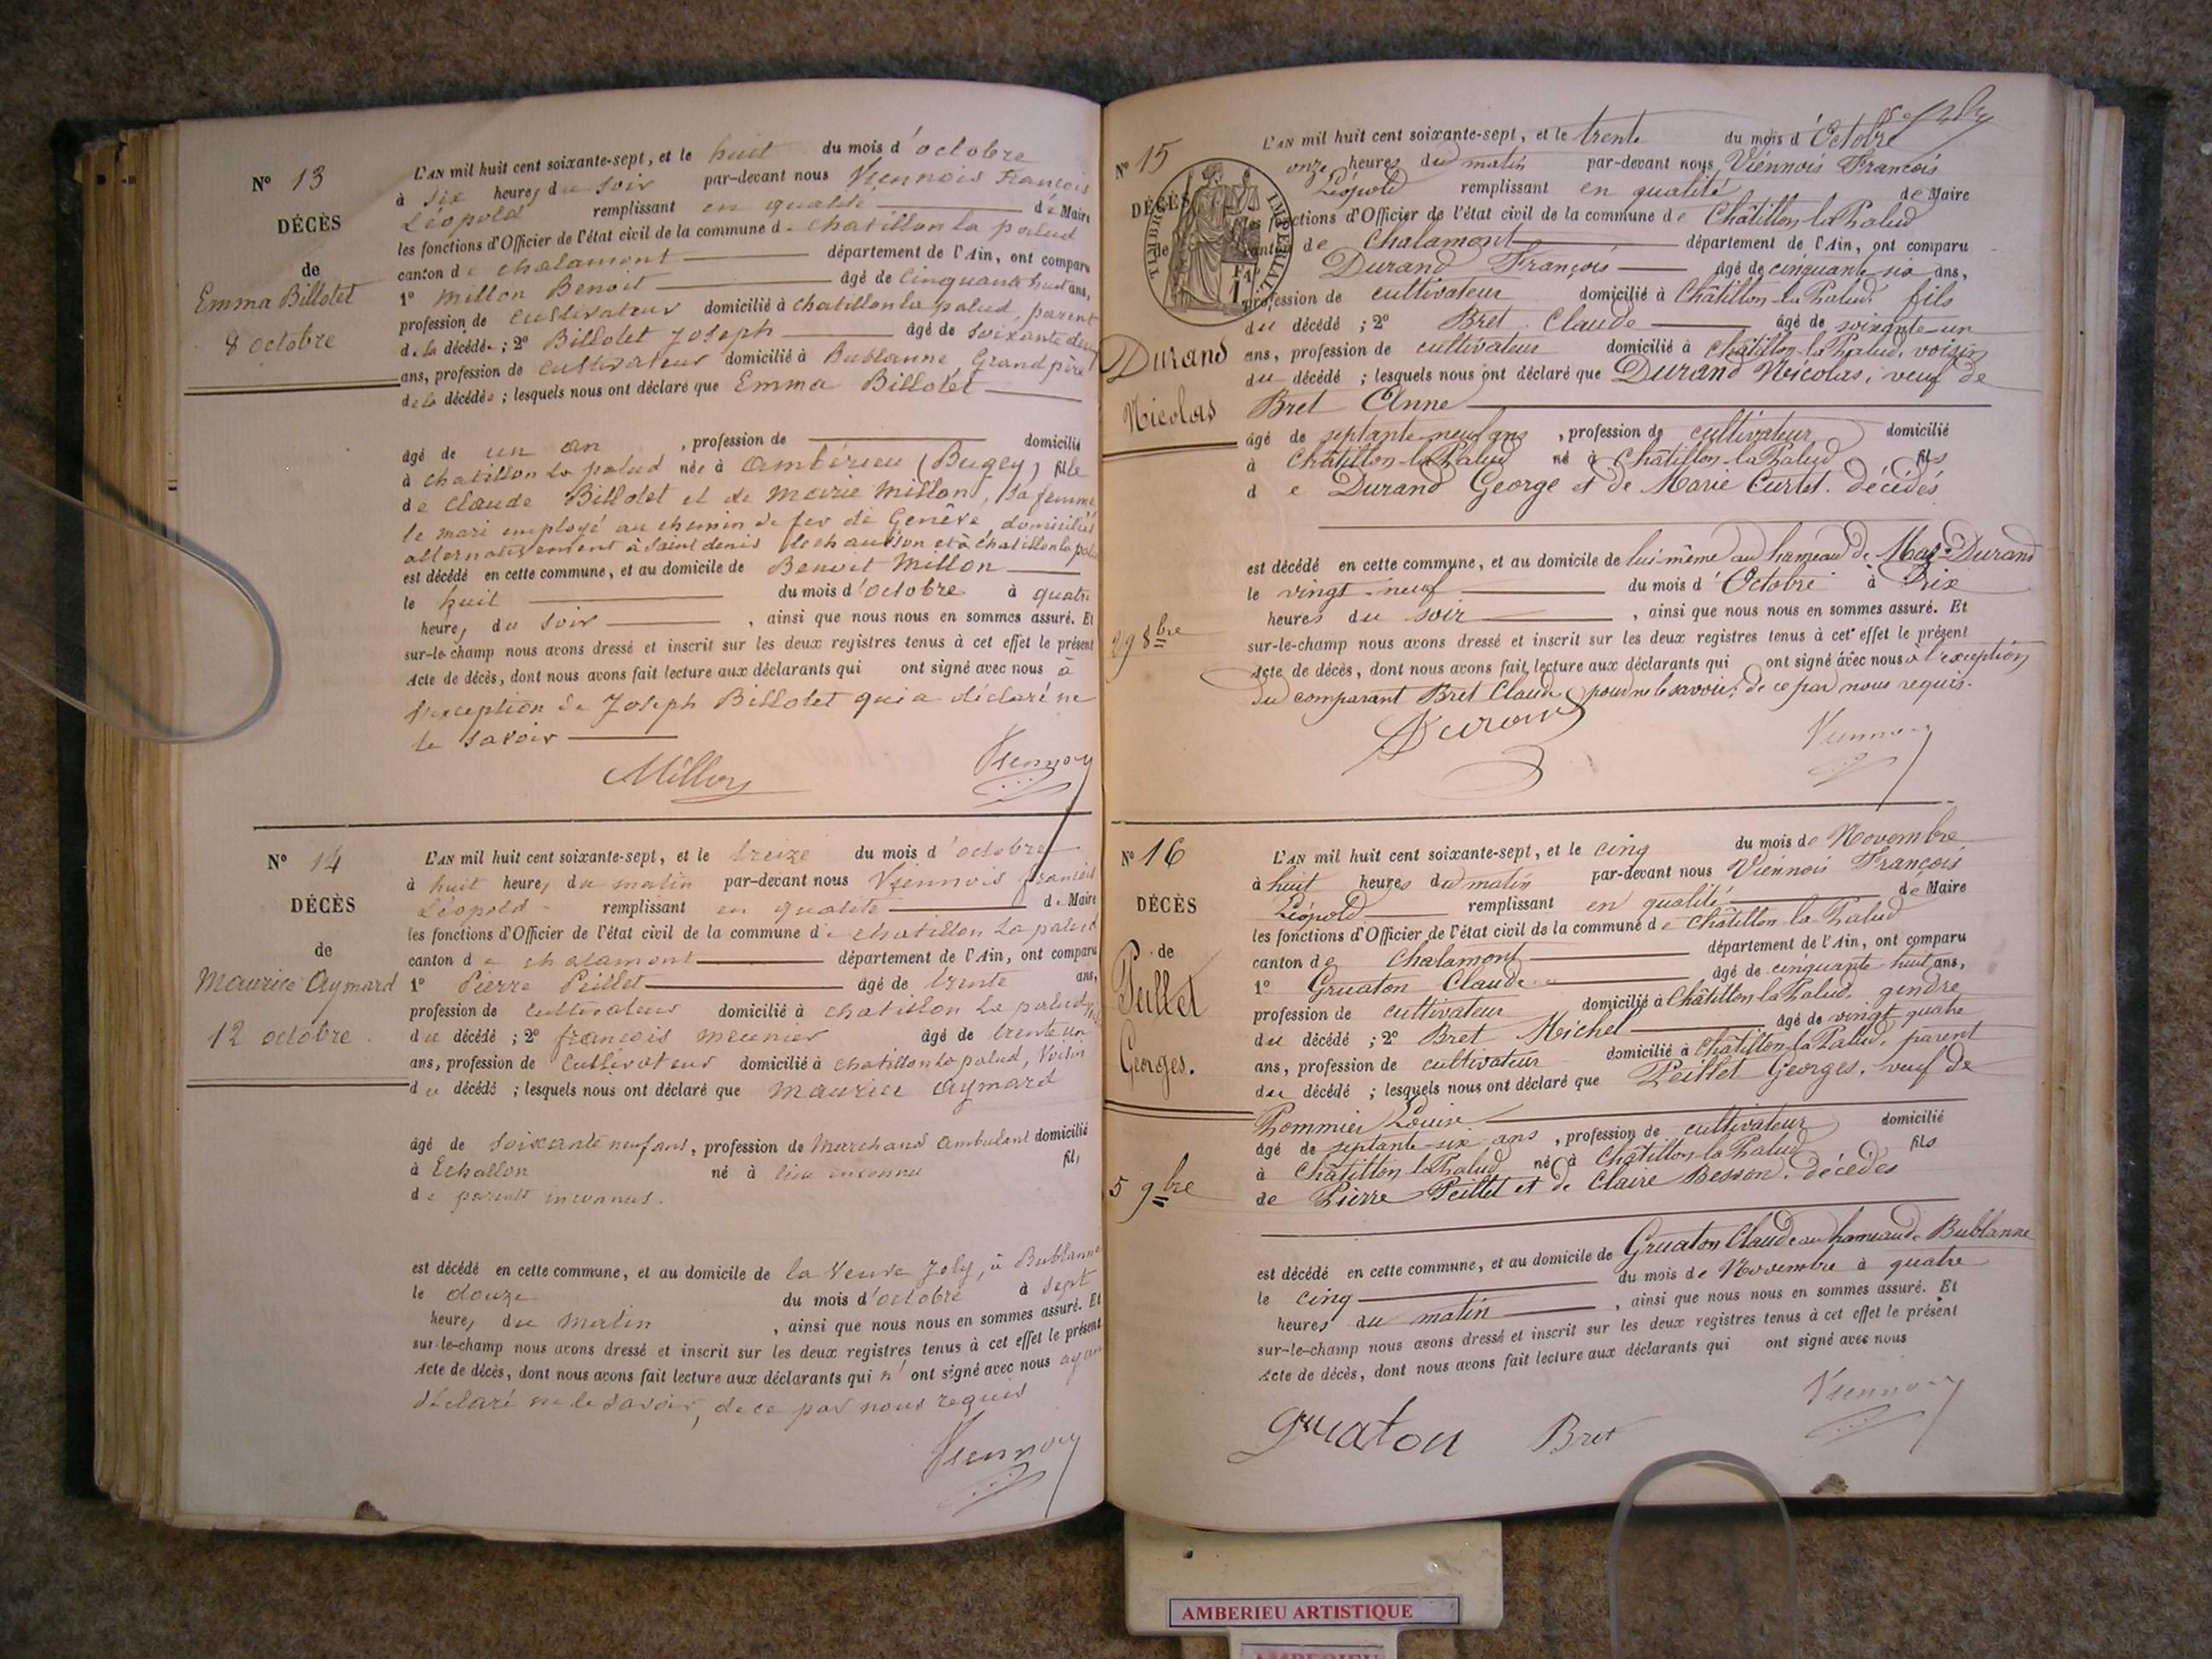 N° 13
DÉCÈS
de
Emma Billotet
8 octobre
L'AN mil huit cent soixante-sept, et le huit du mois d'octobre
à six heures du soir par-devant nous Viennois François
Léopold remplissant en qualité de Maire
les fonctions d'Officier de l'état civil de la commune de chatillon la palud
canton de chalamont département de l'Ain, ont comparu
1° Millon Benoit âgé de cinquante huit ans,
profession de cultivateur domicilié à chatillon la palud, parent
de la décédée ; 2° Billotet Joseph âgé de soixante deux
ans, profession de cultivateur domicilié à Bublanne, Grand père
de la décédée ; lesquels nous ont déclaré que Emma Billotet
âgé de un an , profession de domicilié
à chatillon la palud née à ambérieu (Bugey) fille
de Claude Billotet et de marie millon, sa femme
le mari employé au chemin de fer de Genève, domiciliés
alternativement à Saint denis le chausson et à chatillon la palud
est décédé en cette commune, et au domicile de Benoit Millon
le huit du mois d'octobre à quatre
heures du soir , ainsi que nous nous en sommes assuré. Et
sur-le-champ nous avons dressé et inscrit sur les deux registres tenus à cet effet le présent
Acte de décès, dont nous avons fait lecture aux déclarants qui ont signé avec nous à
l'exception de Joseph Billotet qui a déclaré ne
le savoir
Millon Viennois
N° 14
DÉCÈS
de
Maurice Aymard
12 octobre
L'AN mil huit cent soixante-sept, et le treize du mois d'octobre
à huit heures du matin par-devant nous Viennois françois
Léopold remplissant en qualité de Maire
les fonctions d'Officier de l'état civil de la commune de chatillon la palud
canton de chalamont département de l'Ain, ont comparu
1° Pierre Peillet âgé de trente ans,
profession de cultivateur domicilié à chatillon la palud,
du décédé ; 2° françois meunier âgé de trente un
ans, profession de cultivateur domicilié à chatillon la palud, voisin
du décédé ; lesquels nous ont déclaré que maurice aymard
âgé de soixante neuf ans, profession de marchand ambulant domicilié
à Echallon né à lieu inconnu fils
de parents inconnus.
est décédé en cette commune, et au domicile de la veuve Joly, à Bublanne
le douze du mois d'octobre à sept
heures du matin , ainsi que nous nous en sommes assuré. Et
sur-le-champ nous avons dressé et inscrit sur les deux registres tenus à cet effet le présent
Acte de décès, dont nous avons fait lecture aux déclarants qui n'ont signé avec nous ayant
déclaré ne le savoir, de ce par nous requis
Viennois
N° 15
DÉCÈS
de
TIMBRE IMPÉRIAL
Durand
Nicolas
29 8bre
L'AN mil huit cent soixante-sept, et le trente du mois d'Octobre
onze heures du matin par-devant nous Viennois François
Léopold remplissant en qualité de Maire
les fonctions d'Officier de l'état civil de la commune de Châtillon-la-Palud
canton de Chalamont département de l'Ain, ont comparu
Durand François âgé de cinquante six ans,
profession de cultivateur domicilié à Châtillon-la-Palud, fils
du décédé ; 2° Bret Claude âgé de soixante-un
ans, profession de cultivateur domicilié à Châtillon-la-Palud, voisin
du décédé ; lesquels nous ont déclaré que Durand Nicolas, veuf de
Bret Anne
âgé de septante-neuf ans , profession de cultivateur domicilié
à Châtillon-la-Palud né à Châtillon-la-Palud fils
de Durand George et de Marie Curtet. décédés
est décédé en cette commune, et au domicile de lui-même au hameau de Mas-Durand
le vingt-neuf du mois d'Octobre à Dix
heures du soir , ainsi que nous nous en sommes assuré. Et
sur-le-champ nous avons dressé et inscrit sur les deux registres tenus à cet effet le présent
Acte de décès, dont nous avons fait lecture aux déclarants qui ont signé avec nous à l'exception
du comparant Bret Claude pour ne le savoir, de ce par nous requis.
Durand Viennois
N° 16
DÉCÈS
de
Peillet
Georges.
5 9bre
L'AN mil huit cent soixante-sept, et le cinq du mois de Novembre
à huit heures du matin par-devant nous Viennois François
Léopold remplissant en qualité de Maire
les fonctions d'Officier de l'état civil de la commune de Châtillon-la-Palud
canton de Chalamont département de l'Ain, ont comparu
1° Gruaton Claude âgé de cinquante-huit ans,
profession de cultivateur domicilié à Châtillon la Palud, gendre
du décédé ; 2° Bret Michel âgé de vingt quatre
ans, profession de cultivateur domicilié à Châtillon-la-Palud, parent
du décédé ; lesquels nous ont déclaré que Peillet Georges, veuf de
Pommier Louise
âgé de septante-six ans , profession de cultivateur domicilié
à Châtillon-la-Palud né à Châtillon-la-Palud fils
de Pierre Peillet et de Claire Besson. décédés
est décédé en cette commune, et au domicile de Gruaton Claude au hameau de Bublanne
le cinq du mois de Novembre à quatre
heures du matin , ainsi que nous nous en sommes assuré. Et
sur-le-champ nous avons dressé et inscrit sur les deux registres tenus à cet effet le présent
Acte de décès, dont nous avons fait lecture aux déclarants qui ont signé avec nous
gruaton Bret Viennois
AMBERIEU ARTISTIQUE
AMBERIEU